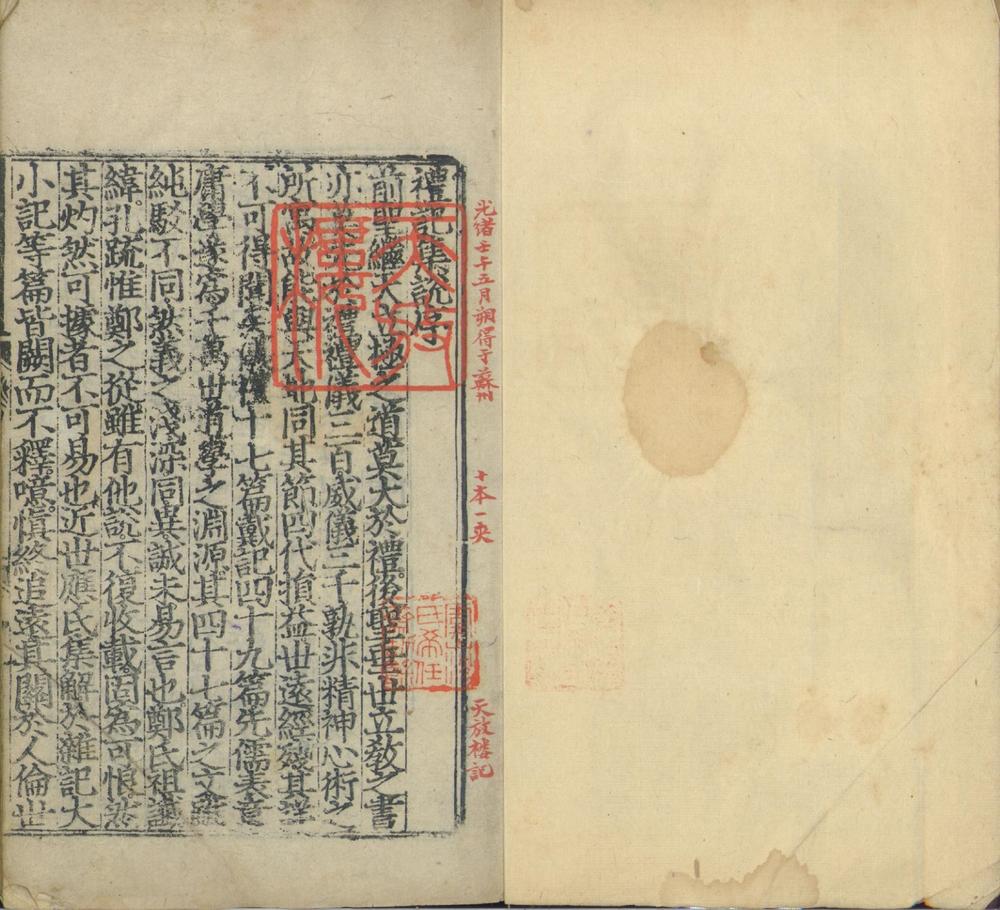 光緒壬午五月朔得于蘇州 十本一夾 天放樓記
禮記集說序
前聖繼天立極之道莫大於禮後聖垂世立教之書
亦莫先於禮禮儀三百威儀三千孰非精神心術之
所寓故能與天地同其節四代損益世遠經殘其詳
不可得聞矣儀禮十七篇戴記四十九篇先儒表章
庸學遂為千萬世道學之淵源其四十七篇之文雖
純駁不同然義之淺深同異誠未易言也鄭氏祖讖
緯孔疏惟鄭之從雖有他說不復收載固為可恨然
其灼然可據者不可易也近世應氏集解於雜記大
小記等篇皆闕而不釋噫慎終追遠其關於人倫世
天放